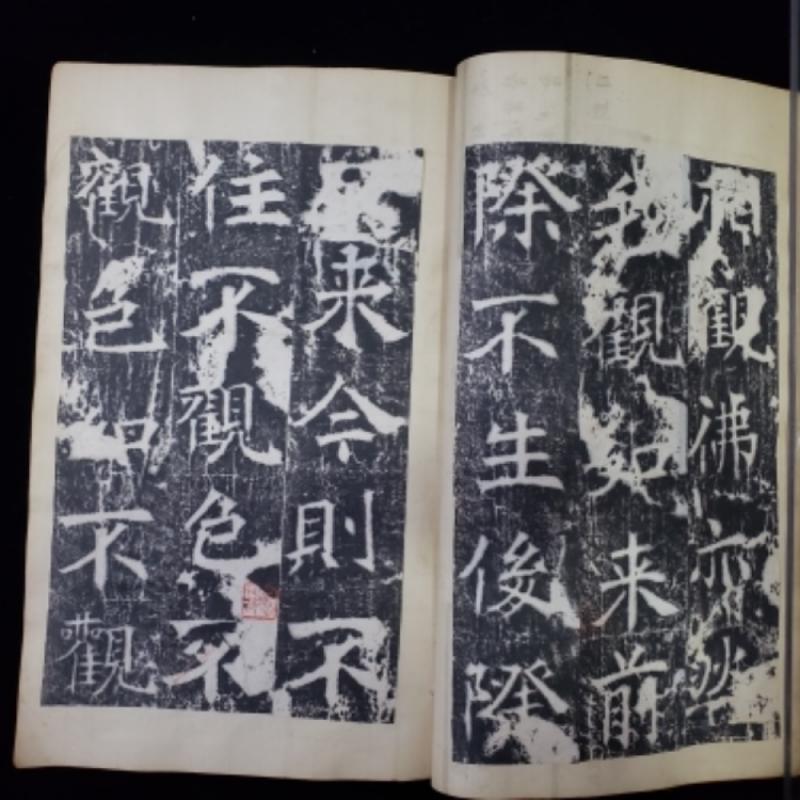 相觀佛亦然
我觀如来前
際不生後際
来今則不
住不觀色不
觀色如不觀